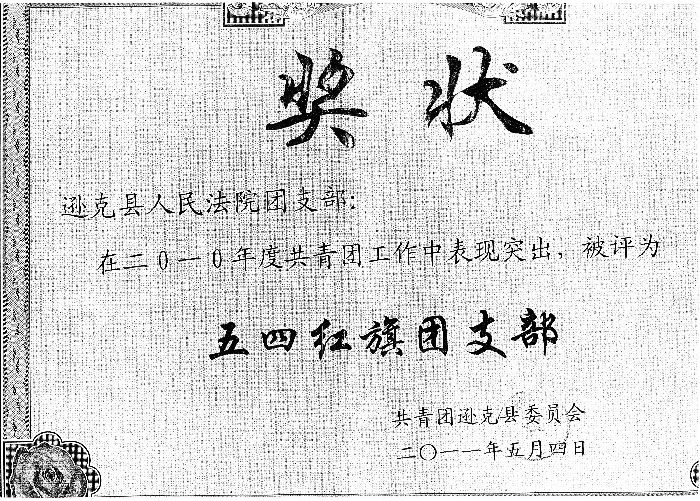 奖状
逊克县人民法院团支部:
在二0一0年度共青团工作中表现突出，被评为
五四红旗团支部
共青团逊克县委员会
二〇一一年五月四日